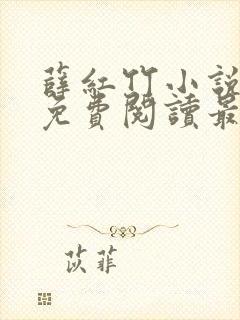 薛紅竹小說
免費閱讀最
苡菲